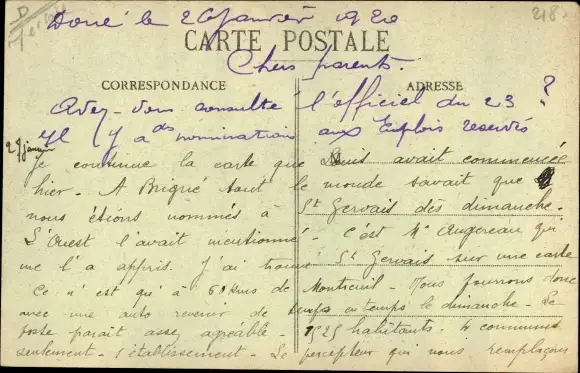 Doué le 26 Janvier 1920
218
CARTE POSTALE
Chers parents.
CORRESPONDANCE
ADRESSE
Avez-vous consulté l'officiel du 23 ?
Il y a des nomination aux Emplois reservés
27 janvier
Je continue la carte que Louis avait commencée
hier - A Brigné tout le monde savait que
nous étions nommés à St Gervais dès dimanche.
L'Ouest l'avait mentionné - C'est Mr Augereau qui
me l'a appris. J'ai trouvé St Gervais sur une carte
Ce n'est qu'à 6 kms de Montreuil - Nous pourrons donc
avec une auto revenir de temps en temps le dimanche - Le
poste parait assez agréable - 1525 habitants. 4 communes
seulement - l'établissement - Le percepteur qui nous remplaçons